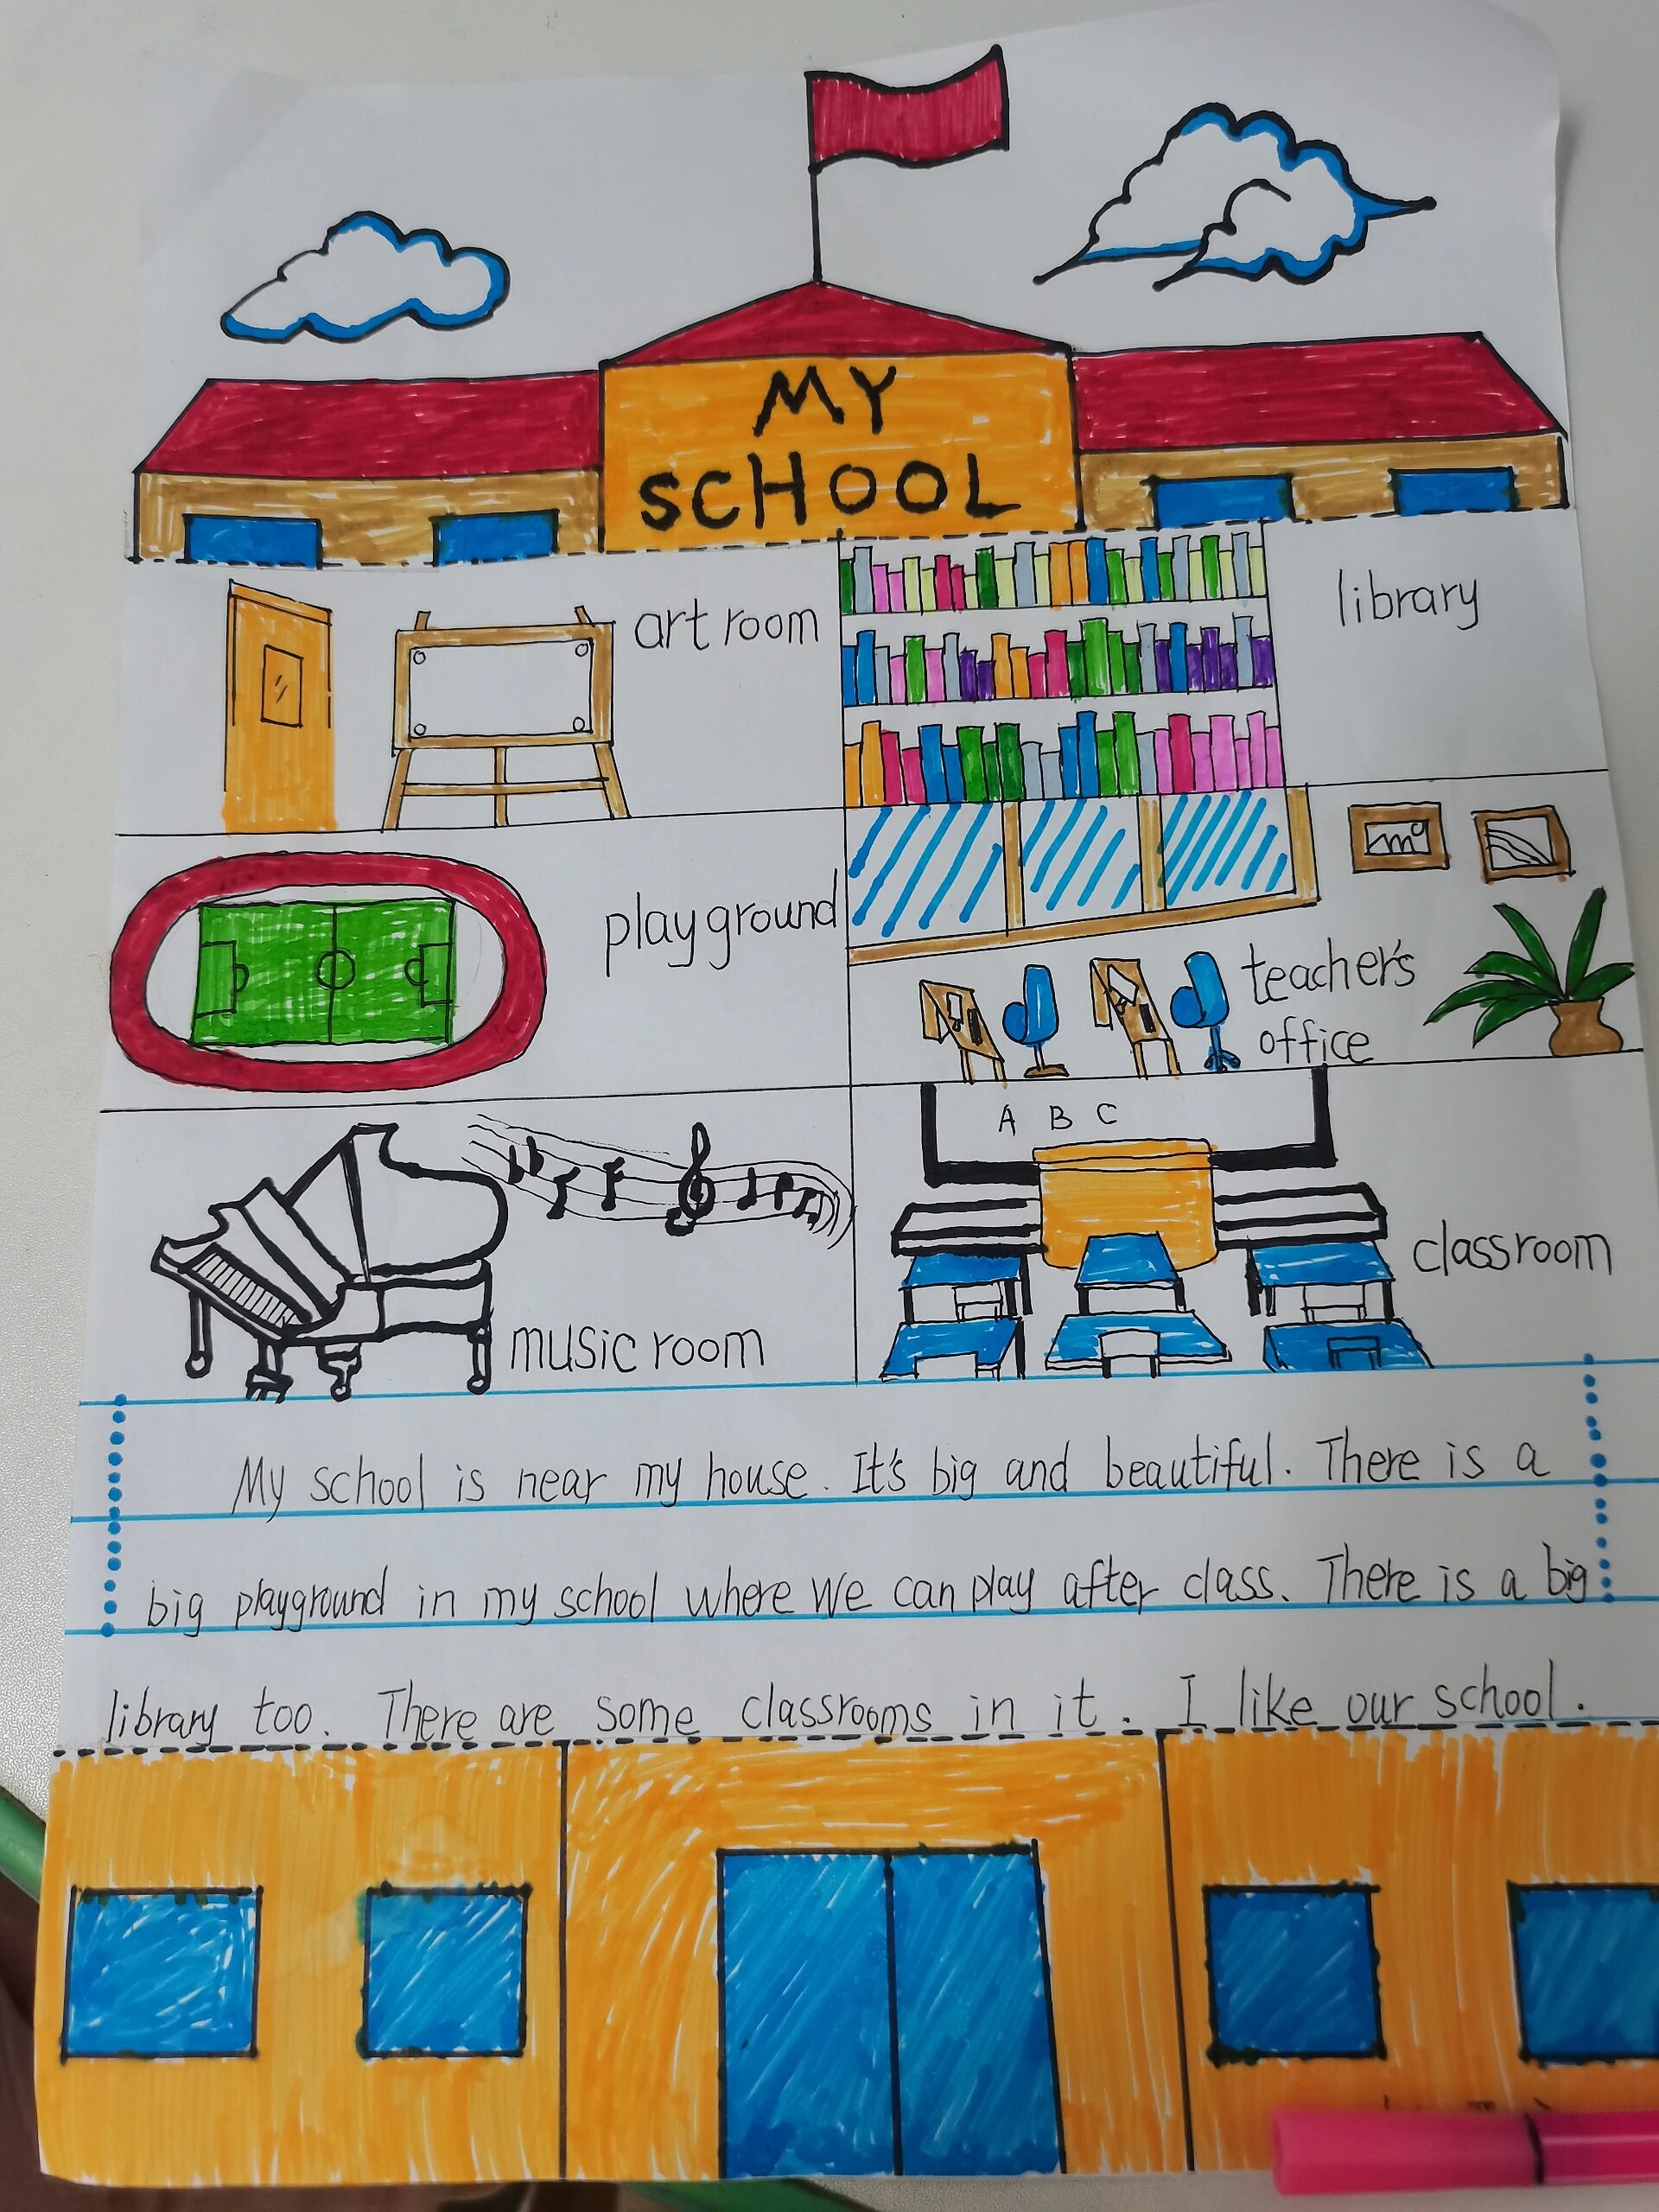 MY
SCHOOL
art room
library
playground
teacher's
office
A B C
music room
classroom
My school is near my house. It's big and beautiful. There is a
big playground in my school where we can play after class. There is a big
library too. There are some classrooms in it. I like our school.